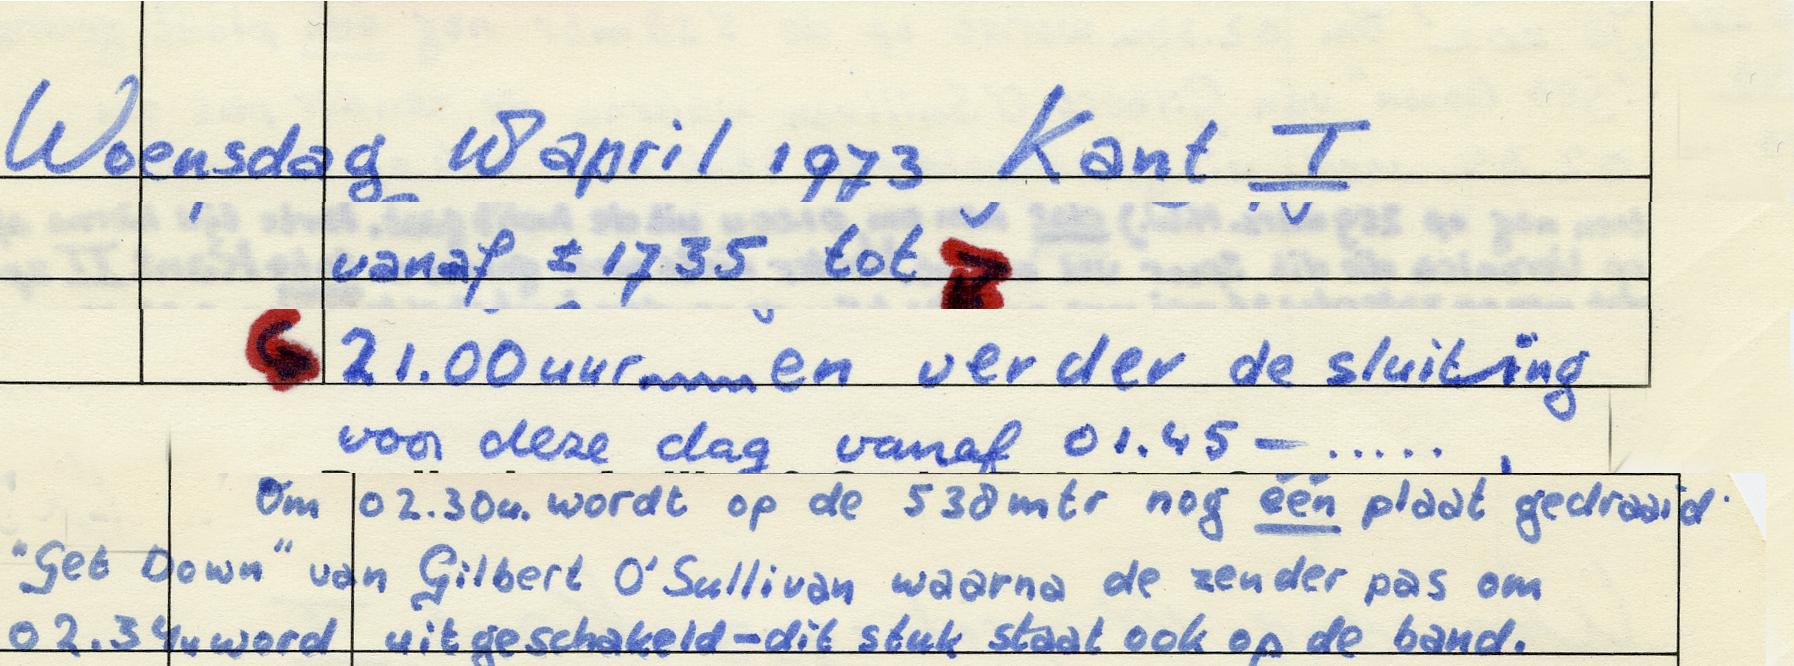 Woensdag 18 april 1973 Kant I
vanaf ± 1735 tot
21.00 uur en verder de sluiting
voor deze dag vanaf 01.45 - .....
Om 02.30u. wordt op de 538 mtr nog één plaat gedraaid.
"Get Down" van Gilbert O'Sullivan waarna de zender pas om
02.34u word uitgeschakeld - dit stuk staat ook op de band.